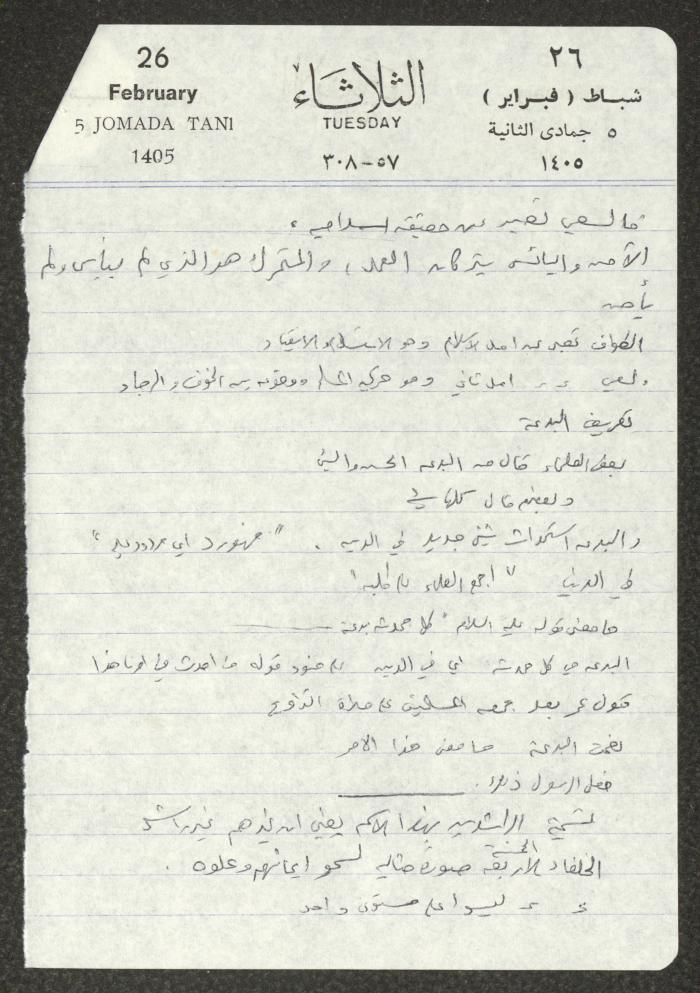 26
February
5 JOMADA TANI
1405
الثلاثاء
TUESDAY
٥٧-٣٠٨
٢٦
شباط ( فبراير )
٥ جمادى الثانية
١٤٠٥
فالسعي تعبير عن حقيقة اسلامية ،
الآمن واليائس يتركان العمل ، والمتحرك هو الذي لم ييأس ولم
يأمن
الطواف تعبير عن اصل الاسلام وهو الاستسلام والانقياد
والسعي = = اصل ثاني وهو حركة المسلم ووقوعه بين الخوف والرجاء
تعريف البدعة
بعض العلماء قال من البدعة الحسن والسيئ
وبعضهم قال كلها
والبدعة استحداث شيء جديد في الدين . " فهو رد اي مردود عليه "
في الدنيا " اجمع العلماء
ما معنى قوله عليه السلام " كل محدثة بدعة
البدعة هي كل محدثة اي في الدين قوله من احدث في امرنا هذا
قول عمر بعد جمعه المسلمين على صلاة التراويح
نعمت البدعة ما معنى هذا الامر
فعل الرسول ذلك .
تسمية الراشدين بهذا الاسم يعني ان غيرهم غير راشد
الخمسة
الخلفاء الأربعة صورة مثالية لسمو ايمانهم وعلوه .
= = ليسوا على مستوى واحد